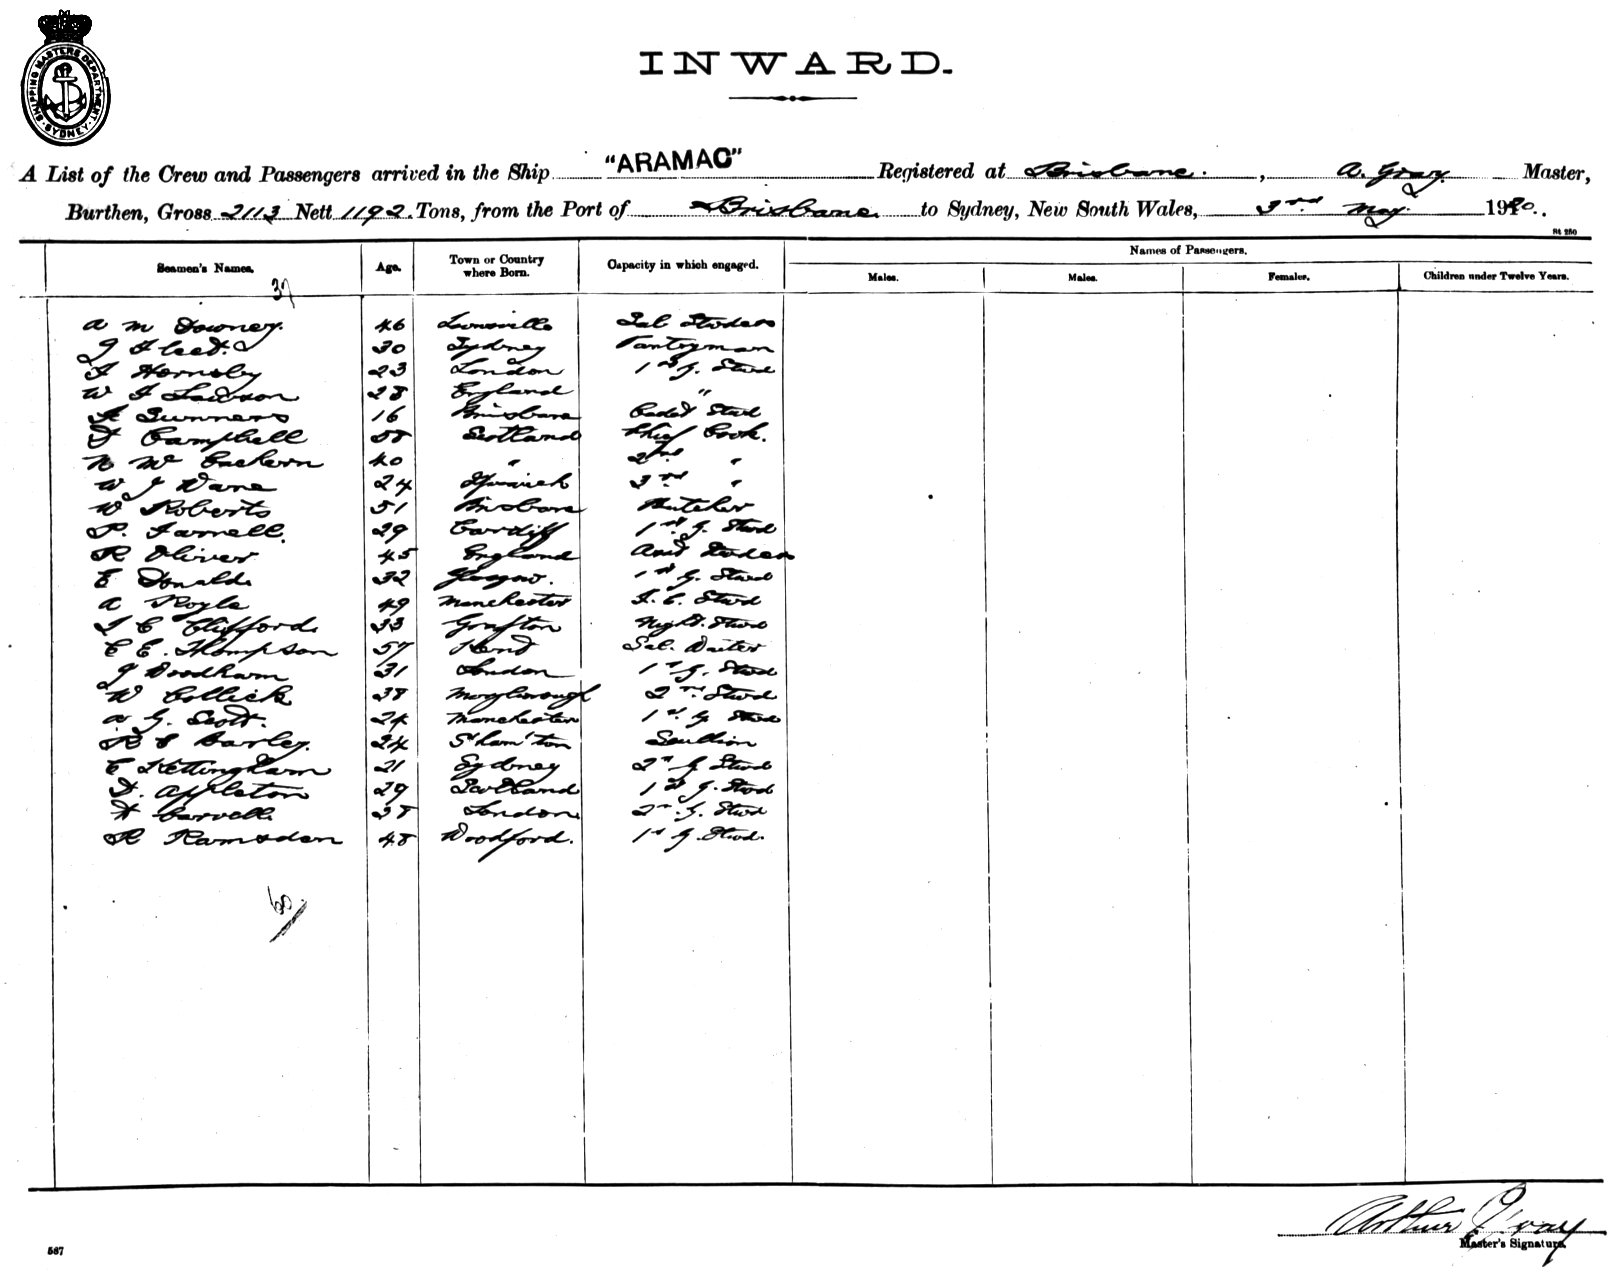 SHIPPING MASTERS DEPARTMENT SYDNEY
INWARD.
A List of the Crew and Passengers arrived in the Ship "ARAMAC" Registered at Brisbane. , A. Gray. Master,
Burthen, Gross 2113 Nett 1192 Tons, from the Port of Brisbane to Sydney, New South Wales, 3rd May. 1920.
Names of Passengers.
Seamen's Names. Age. Town or Country where Born. Capacity in which engaged. Males. Males. Females. Children under Twelve Years.
37
A M Downey. 46 Townsville Sal Stwdess
J Fleet. 30 Sydney Pantryman
F Hornsby 23 London 1st G. Stwd
W F Lawson 28 England "
Gunners 16 Brisbane Cadet Stwd
D Campbell 58 Scotland Chief Cook.
N Mc Eachern 40 " 2nd "
W J Ware 24 Ipswich 3rd "
W Roberts 51 Brisbane Butcher
P. Farnell. 29 Cardiff 1st G. Stwd
R Oliver 45 England Asst Stwdess
E Donald 32 Glasgow. 1st G. Stwd
A Royle 49 Manchester F. C. Stwd
C Clifford. 33 Grafton Night. Stwd
C E. Thompson 57 Kent Sal. Waiter
J Woodham 31 London 1st G. Stwd
W Collick 38 Maryborough 2nd Stwd
A G. Scott. 24 Manchester 1st G Stwd
R S Barley. 24 S'ham'ton Scullion
C Kettingham 21 Sydney 2nd G Stwd
D. Appleton 29 Scotland 1st G. Stwd
Carvell. 38 London. 2nd G. Stwd
R Ramsden 48 Woodford. 1st G. Stwd.
60
Arthur Gray
Master's Signature.
587